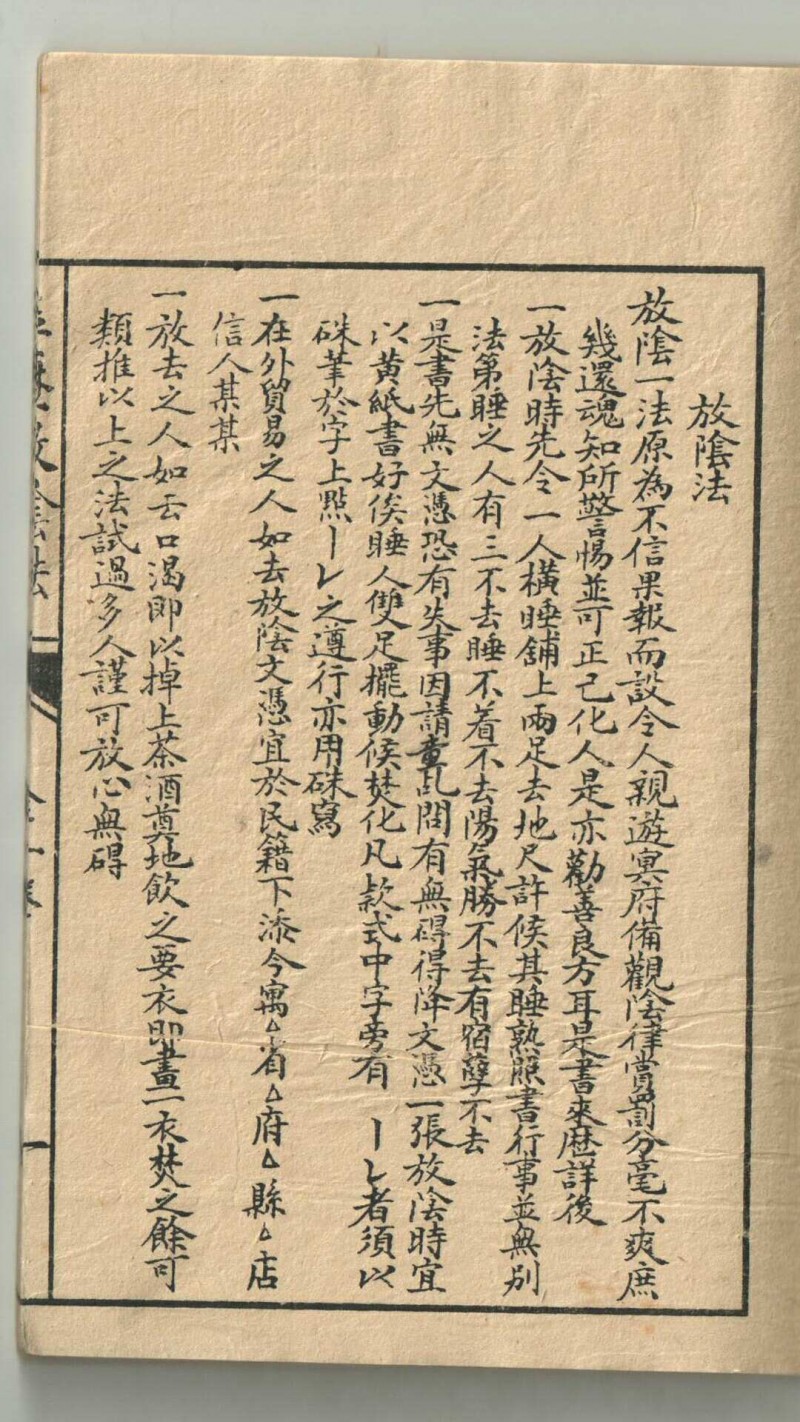 放陰法
放陰一法原為不信果報而設令人親遊冥府備觀陰律賞罰分毫不爽庶
幾還魂知所警惕並可正己化人是亦勸善良方耳是書來歷詳後
一放陰時先令一人橫睡鋪上兩足去地尺許候其睡熟照書行事並無別
法第睡之人有三不去睡不着不去陽氣勝不去有宿孽不去
一是書先無文憑恐有失事因請童乩問有無碍得降文憑一張放陰時宜
以黃紙書好俟睡人雙足擺動候焚化凡款式中字旁有 丨レ者須以
硃筆於字上點丨レ之遵行亦用硃寫
一在外貿易之人如去放陰文憑宜於民籍下添今寓△省△府△縣△店
信人某某
一放去之人如云口渴即以掉上茶酒奠地飲之要衣即畫一衣焚之餘可
類推以上之法試過多人謹可放心無碍